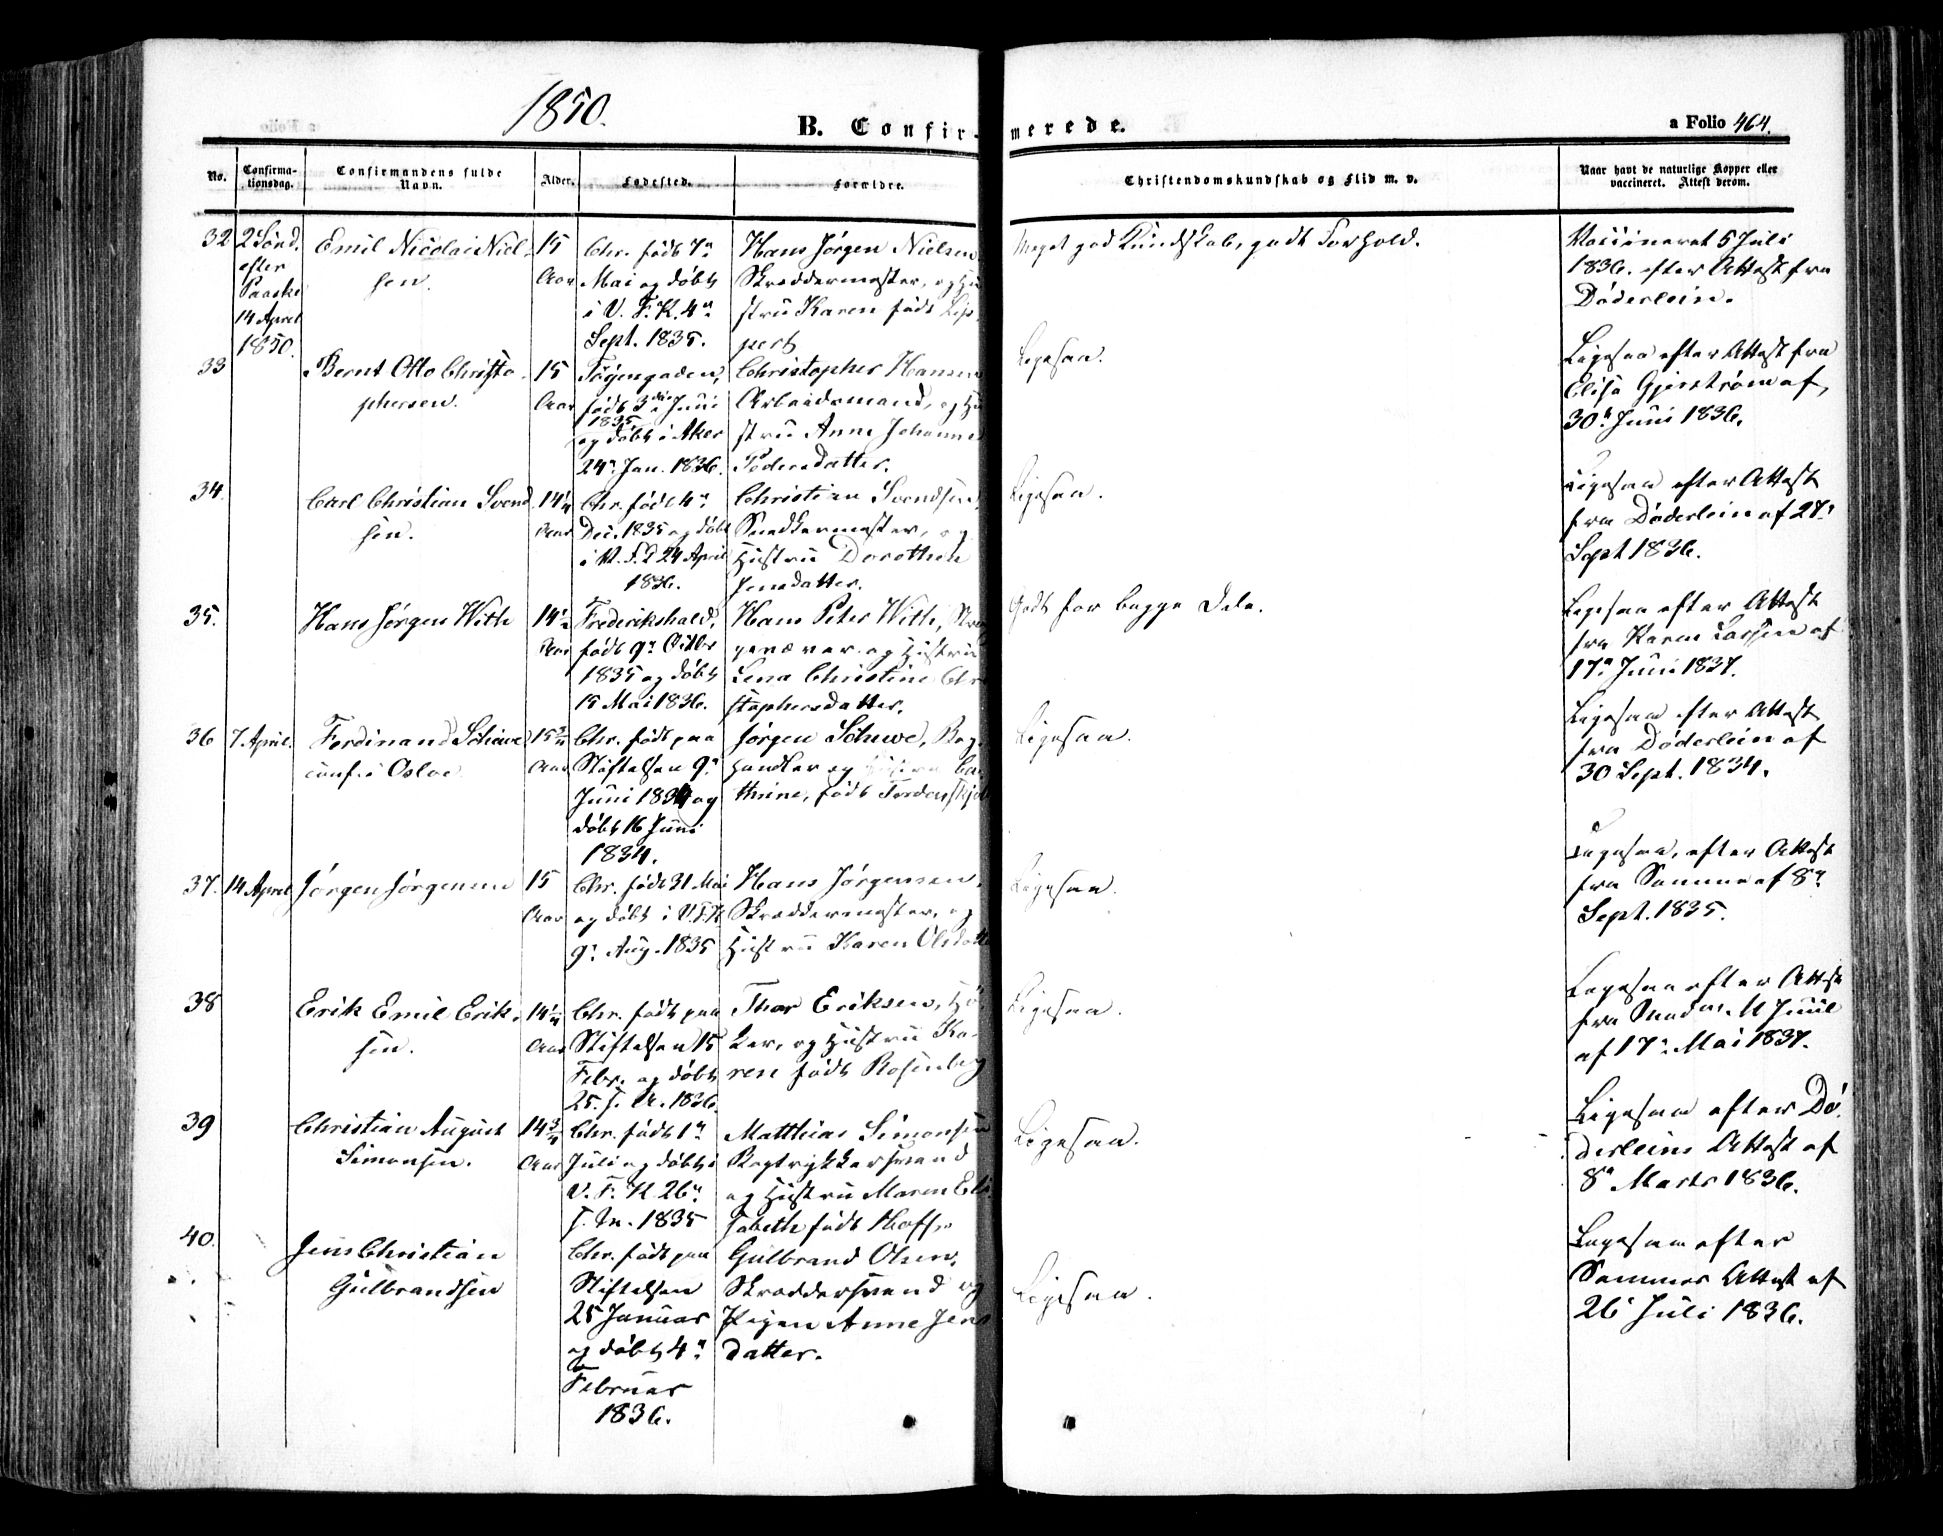 1850.
B. Confirmerede.
a Folio 464.
No.
Confirma-
tionsdag.
Confirmandens fulde
Navn.
Alder.
Fødested.
Forældre.
Christendomskundskab og Flid m. v.
Naar havt de naturlige Kopper eller
vaccineret. Attest derom.
32
2 Sønd.
efter
Paaske
14 April
1850.
Emil Nicolai Niel-
sen.
15
Aar
Chr. født 7de
Mai og døbt
i V. F. K. 4de
Sept. 1835.
Hans Jørgen Nielsen
Skreddermester, og Hu
stru Karen født Lip-
pert
Meget god Kundskab, godt Forhold.
Vaccineret 5 Juli
1836. efter Attest fra
Døderlein.
33
Bernt Otto Christo-
phersen.
15
Aar
Tøyengaden,
født 3die Juni
1835
og døbt i Aker
24de Jan. 1836.
Christopher Hansen
Arbeidsmand, og Hu
stru Anne Johanne
Pedersdatter.
Ligesaa.
Ligesaa efter Attest fra
Elisa Gjerstrøm af,
30te Juni 1836.
34.
Carl Christian Svend
sen.
14 1/4
Aar
Chr. født 4de
Dec. 1835 og døbt
i V. F. K 24 April
1836.
Christian Svendsen,
Snedkermester, og
Hustru Dorothea
Jensdatter.
Ligesaa.
Ligesaa efter Attest
fra Døderlein af 27de
Sept 1836.
35.
Hans Jørgen With
14 1/2
Aar
Frederikshald,
født 9de Octbr
1835 og døbt
15 Mai 1836.
Hans Peter With,
og Hustru
Lena Christine Chri
stophersdatter.
Godt for begge Dele.
Ligesaa efter Attest
fra Karen Lassen af
17de Juni 1837.
36
7. April.
Ferdinand Schüwe
conf. i Osloe
15 3/4
Aar
Chr. født paa
Stiftelsen 9de
Juni 1834 og
døbt 16 Juni
1834.
Jørgen Schüwe, Bog-
handler og Hustru Ca-
thrine, født Tordenskjol
Ligesaa.
Ligesaa efter Attest
fra Døderlein af
30 Sept. 1834.
37.
14 April
Jørgen Jørgensen
15
Aar
Chr. født 31 Mai
og døbt i V. F. K
9de Aug. 1835
Hans Jørgensen,
Skreddermester, og
Hustru Karen Olsdatt
Ligesaa.
Ligesaa, efter Attest
fra Samme af 8de
Sept. 1835.
38
Erik Emil Erik-
sen.
14 1/4
Aar
Chr. født paa
Stiftelsen 15
Febr. og døbt
25. f. A. 1836.
Thor Eriksen, Hø-
ker, og Hustru Ka-
ren født Rosenberg
Ligesaa.
Ligesaa efter Attest
fra Madm. M Juul
af 17de Mai 1837.
39
Christian August
Simonsen.
14 3/4
Aar
Chr. født 1de
Juli og døbt i
V. F. K 26de
f. M. 1835
Matthias Simonsen
Bogtrykkersvend
og Hustru Maren Eli
sabeth født Hoff.
Ligesaa.
Ligesaa efter Dø-
derleins Attest af
8de Marts 1836.
40.
Jens Christian
Gulbrandsen
Chr. født paa
Stiftelsen
25 Januar
og døbt 4de
Februar
1836.
Gulbrand Olsen,
Skreddersvend og
Pigen Anne Jens
datter.
Ligesaa.
Ligesaa efter
Sammes Attest af
26 Juli 1836.